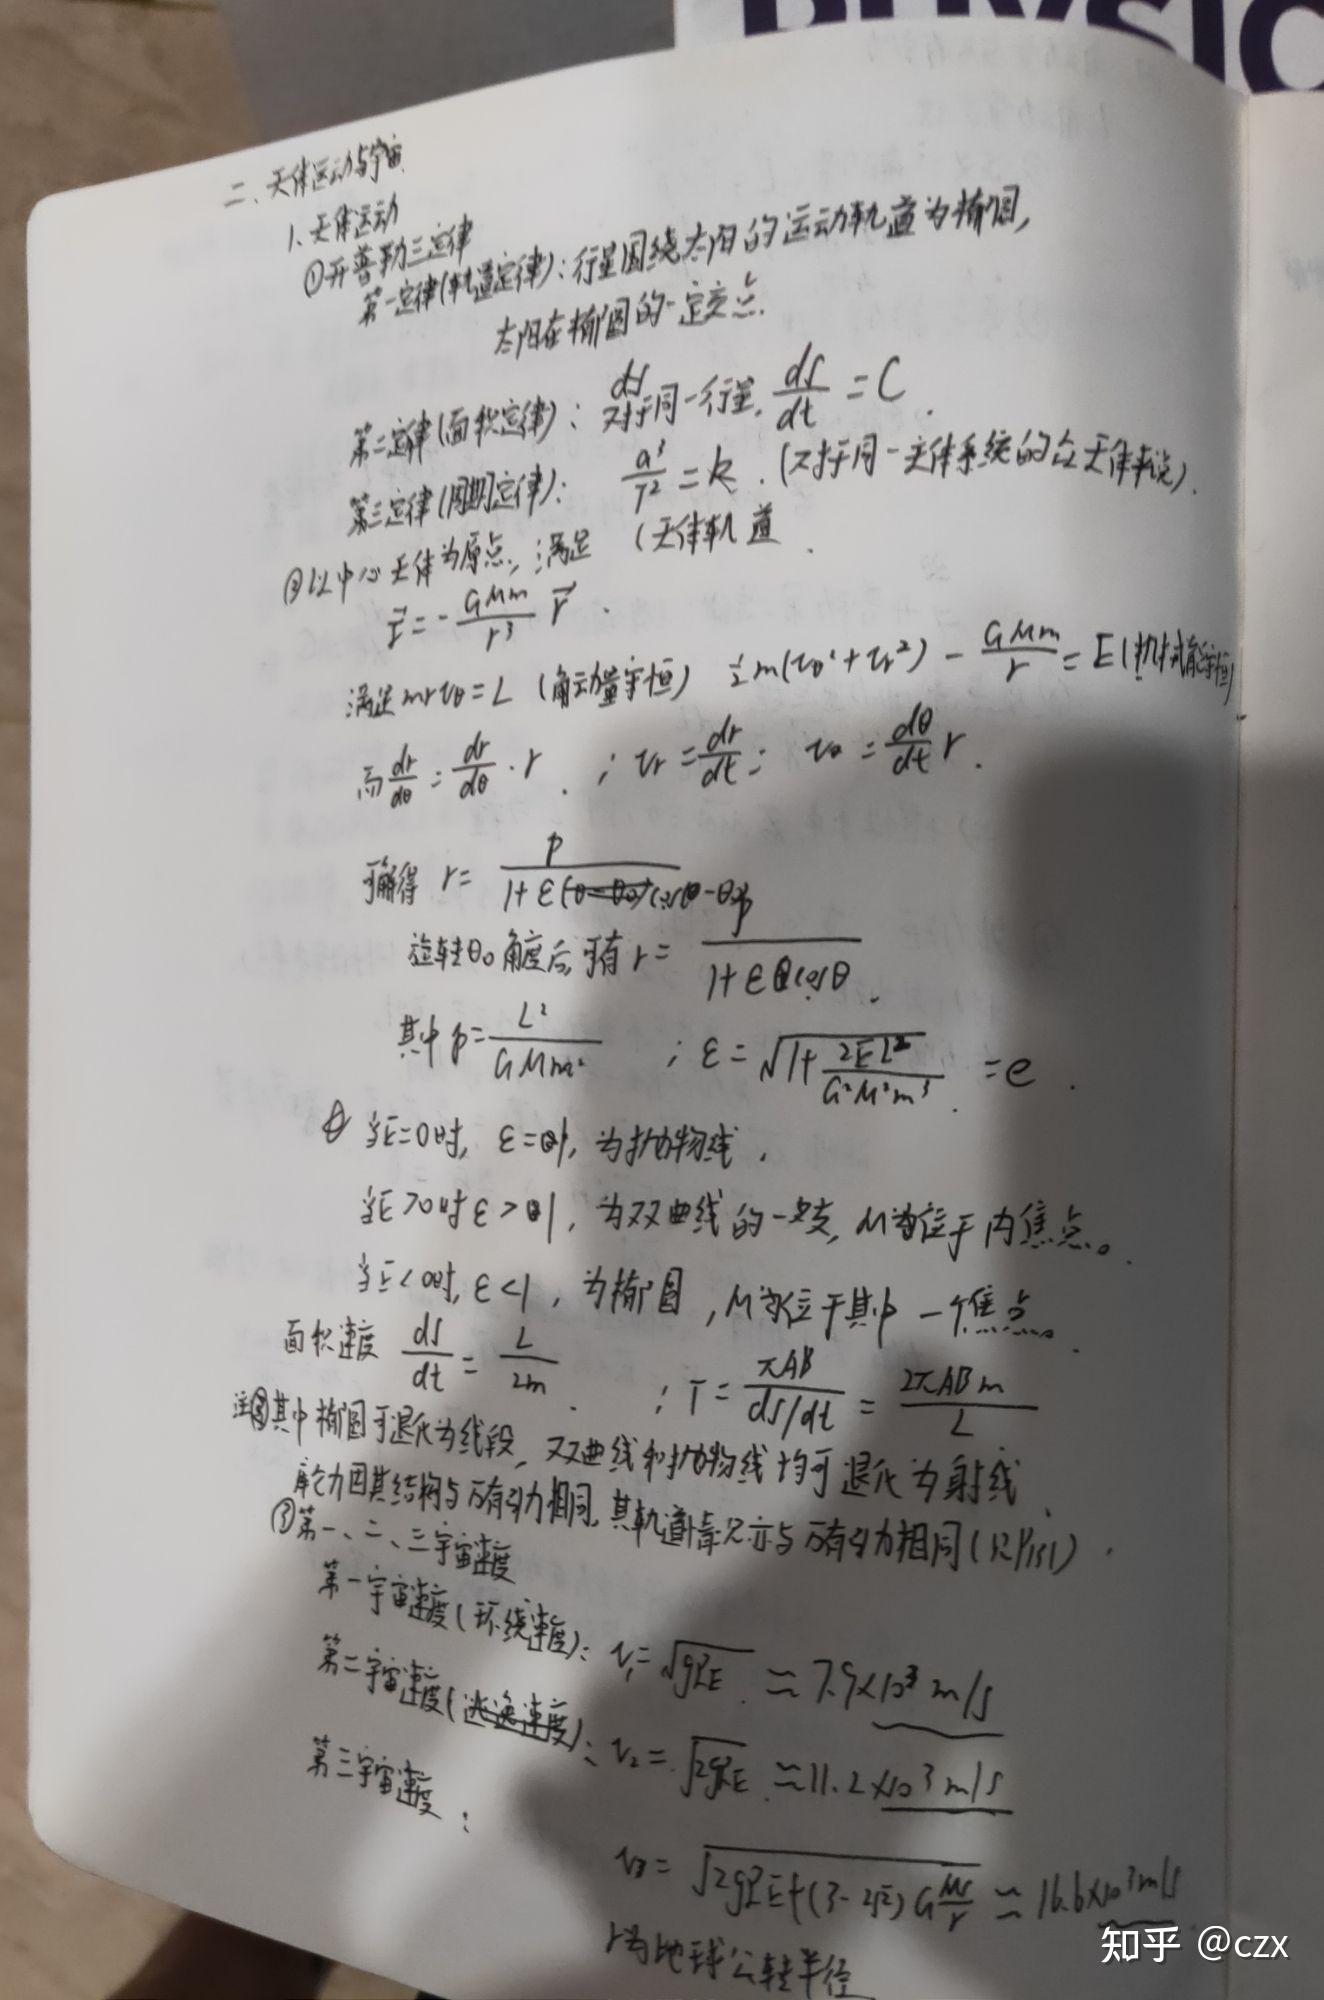 PHYSIC
二、天体运动与宇宙
1.天体运动
①开普勒三定律
第一定律(轨道定律):行星围绕太阳的运动轨道为椭圆,
太阳在椭圆的一定交点.
第二定律(面积定律): 对于同一行星, dS/dt = C.
第三定律(周期定律): a³/T² = k. (对于同一主体系统的众天体来说).
②以中心天体为原点,满足 (天体轨道.
F⃗ = -GMm/r³ r⃗.
满足mrv_θ=L (角动量守恒) ½m(v_θ²+v_r²) - GMm/r = E(机械能守恒)
而 dr/dθ = dr/dθ · r. ; v_r = dr/dt ; v_θ = dθ/dt r.
可解得 r = p/(1+ε cos(θ-θ₀))
旋转θ₀角度后,可有 r = p/(1+ε cosθ).
其中 p = L²/GMm² ; ε = √(1+2EL²/G²M²m³) = e.
当E=0时, ε=1, 为抛物线.
当E>0时 ε>1, 为双曲线的一支, M位于内焦点。
当E<0时, ε<1, 为椭圆, M位于其中一个焦点。
面积速度 dS/dt = L/2m. ; T = πAB/(dS/dt) = 2πABm/L
注 其中椭圆可退化为线段, 双曲线和抛物线均可退化为射线.
库仑力因其结构与万有引力相同,其轨道情况亦与万有引力相同
③第一、二、三宇宙速度
第一宇宙速度(环绕速度): v₁=√gR_E ≈ 7.9×10³ m/s
第二宇宙速度(逃逸速度): v₂=√2gR_E ≈ 11.2×10³ m/s
第三宇宙速度:
v₃ = √(2gR_E+(3-2√2)G Ms/r) ≈ 16.6×10³ m/s
r为地球公转半径
知乎 @czx